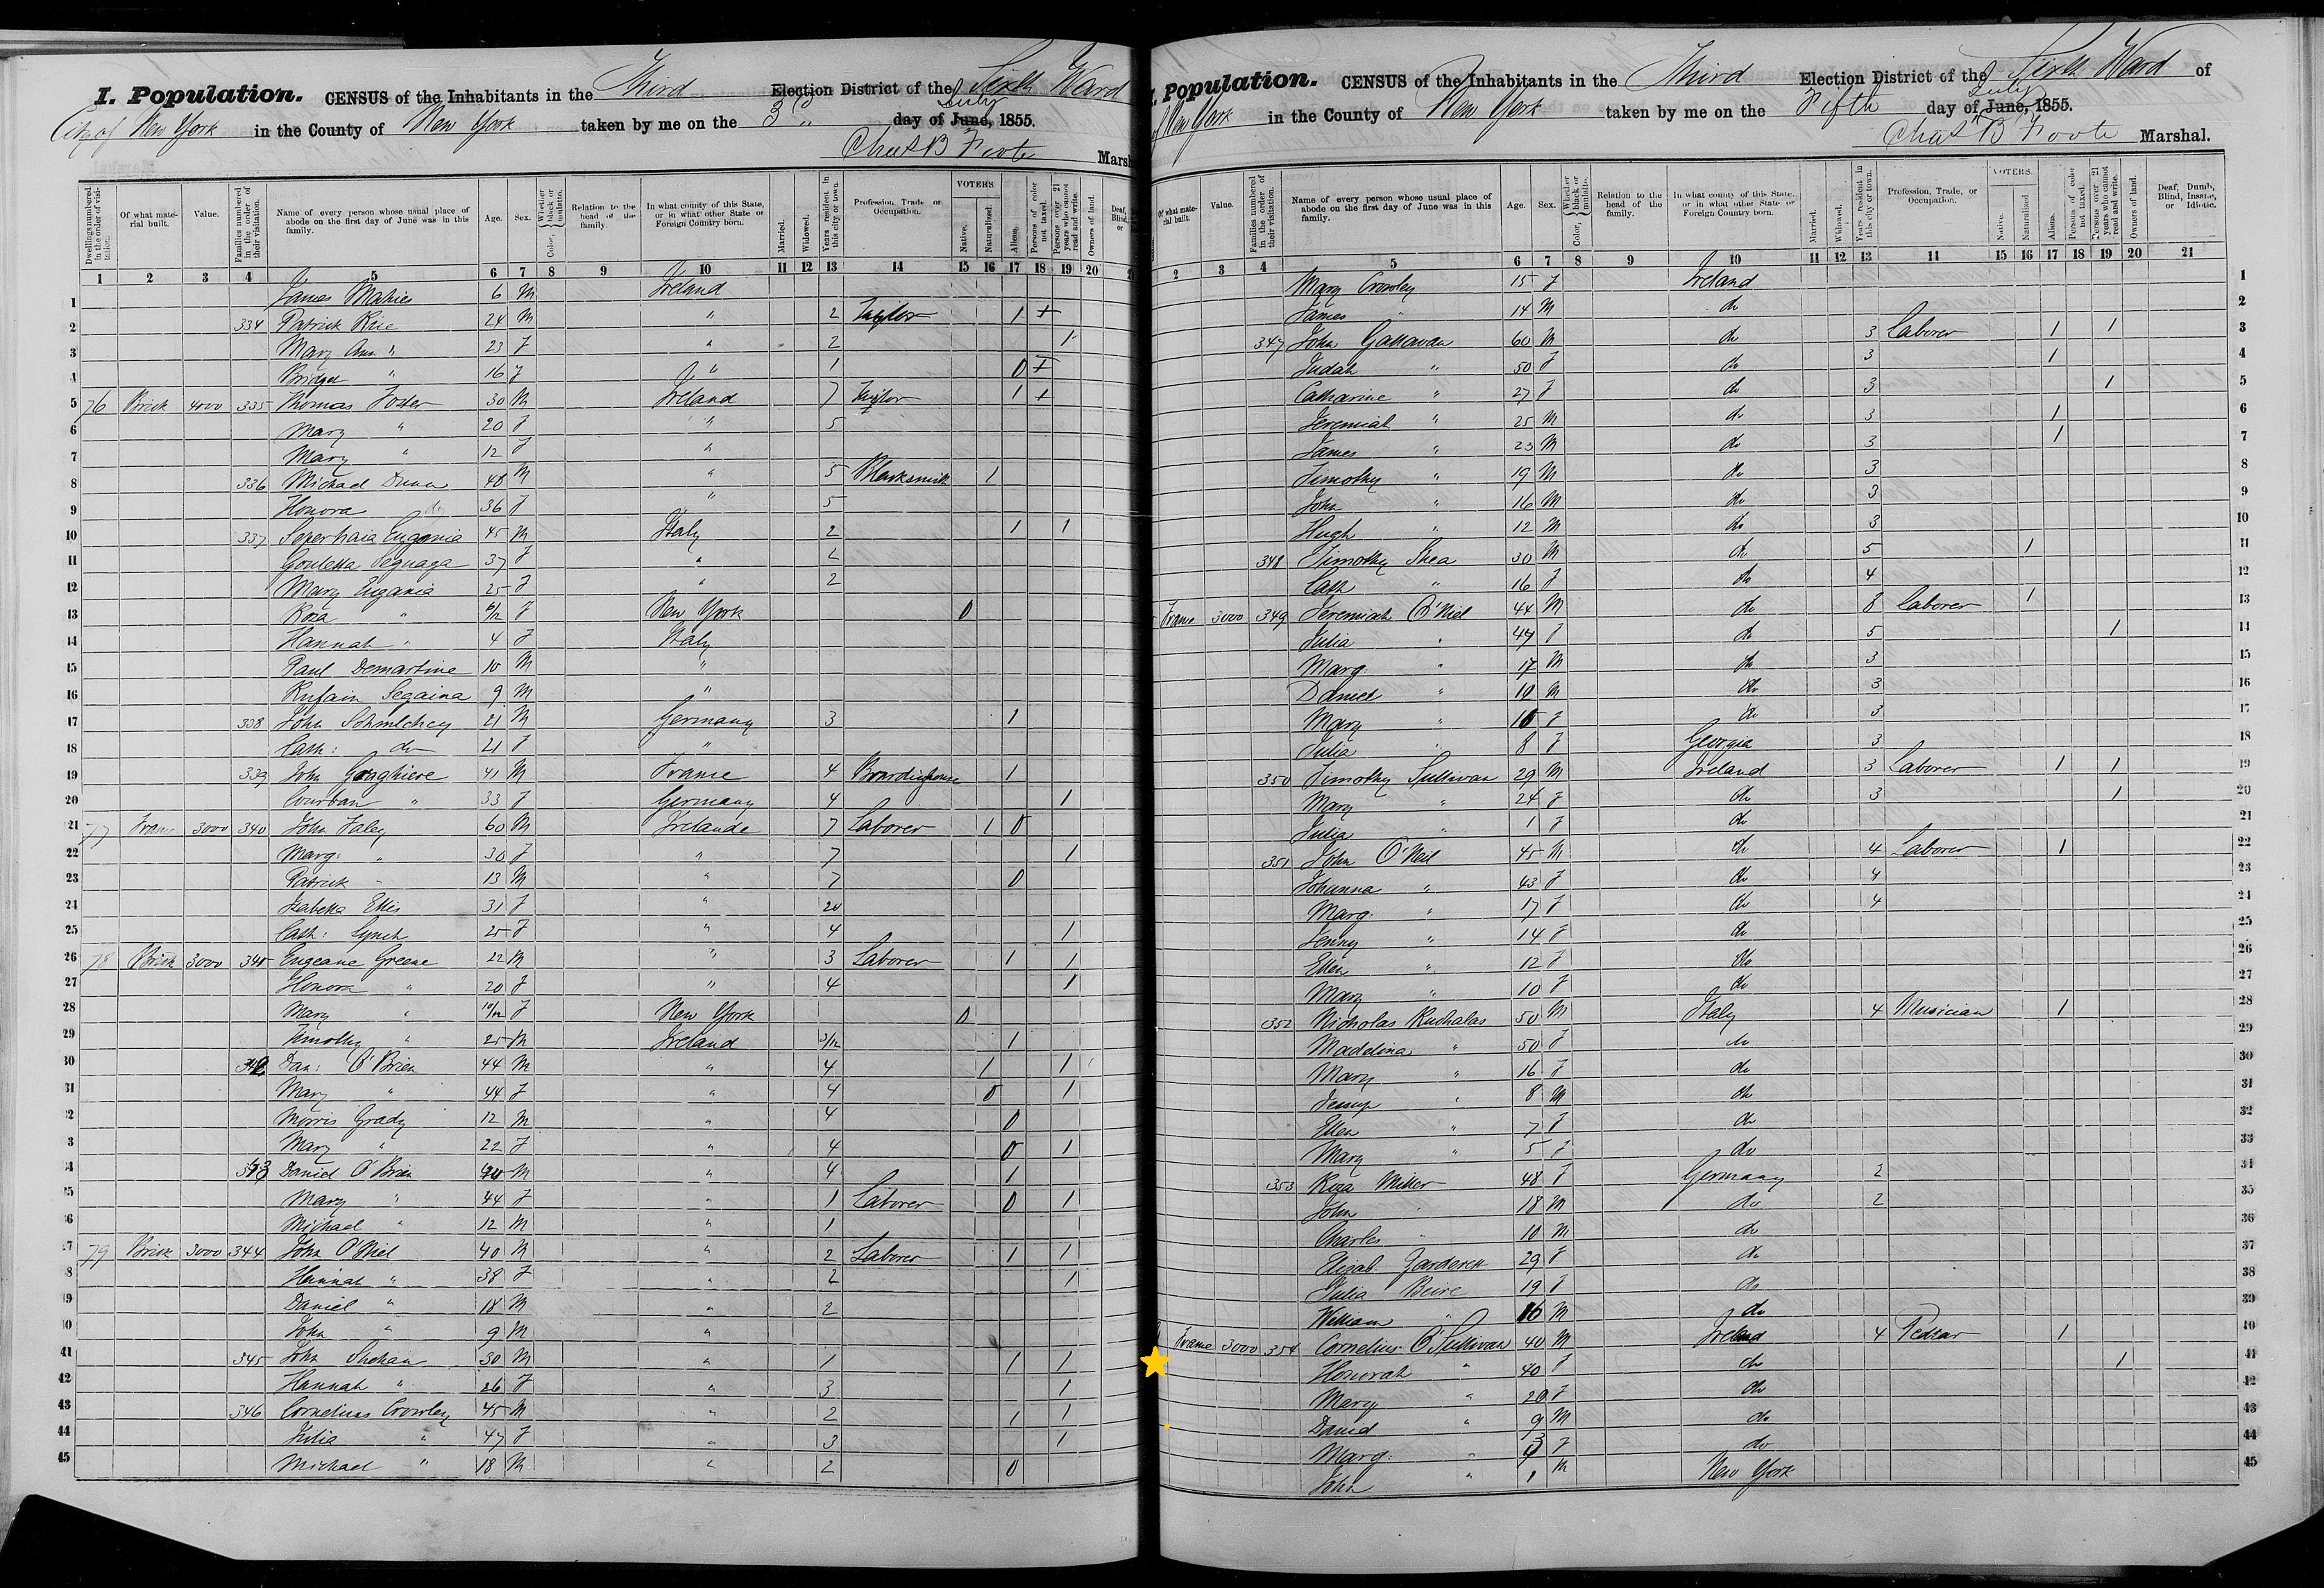 I. Population. CENSUS of the Inhabitants in the Third Election District of the Sixth Ward
City of New York in the County of New York taken by me on the 3" day of June, July 1855.
Chas B Foote Marsh
Dwellings numbered in the order of visitation.
Of what material built.
Value.
Families numbered in the order of their visitation.
Name of every person whose usual place of abode on the first day of June was in this family.
Age.
Sex.
Color, Whether black or mulatto.
Relation to the head of the family.
In what county of this State, or in what other State or Foreign Country born.
Married.
Widowed.
Years resident in this city or town.
Profession, Trade or Occupation.
VOTERS.
Native.
Naturalized.
Aliens.
Persons of color not taxed.
Persons over 21 years who cannot read and write.
Owners of land.
Deaf, Blind, or
1 2 3 4 5 6 7 8 9 10 11 12 13 14 15 16 17 18 19 20 2
1 James 6 M Ireland
2 334 Patrick Rice 24 M " 2 Taylor 1 +
3 Mary Ann " 23 F " 2 1
4 Bridget " 16 F " 1 0 +
5 76 Brick 4000 335 Thomas Foster 30 M Ireland 7 Taylor 1 +
6 Mary " 20 F " 5
7 Mary " 12 F "
8 336 Michael Dunn 48 M " 5 Blacksmith 1
9 Honora do 36 F " 5
10 337 Eugenia 45 M Italy 2 1 1
11 37 F " 2
12 Mary Eugania 25 F " 2
13 Rosa " 6/12 F New York 0
14 Hannah " 4 F Italy
15 Paul Demartine 10 M "
16 Segaina 9 M "
17 338 John 21 M Germany 3 1
18 Cath: do 21 F "
19 339 John 41 M France 4 Boardinghouse 1
20 " 33 F Germany 4 1
21 77 Frame 3000 340 John Faley 60 M Irelande 7 Laborer 1 0
22 Marg: " 30 F " 7 1
23 Patrick " 13 M " 7 0
24 Isabella Ellis 31 F " 20
25 Cath: Lynch 25 F " 4 1
26 78 Brick 3000 341 Eugeane Greene 22 M " 3 Laborer 1 1
27 Honora " 20 F " 4 1
28 Mary " 10/12 F New York 0
29 Timothy " 25 M Ireland 3/12 1
30 342 Dan: O'Brien 44 M " 4 1 1
31 Mary " 44 F " 4 0 1
32 Morris Grady 12 M " 4 0
3 Mary " 22 F " 4 0 1
34 343 Daniel O'Brien M " 4 1
35 Mary " 44 F " 1 Laborer 0 1
36 Michael " 12 M " 1
37 79 Brick 3000 344 John O'Niel 40 M " 2 Laborer 1 1
8 Hannah " 38 F " 2 1
39 Daniel " 18 M " 2
40 John " 9 M "
41 345 John Shehan 30 M " 1 1 1
42 Hannah " 26 F " 3 1
43 346 Cornelius Crowley 45 M " 2 1 1
44 Julia " 47 F " 3 1
45 Michael " 18 M " 2 0
I. Population. CENSUS of the Inhabitants in the Third Election District of the Sixth Ward of
of New York in the County of New York taken by me on the Fifth day of June, July 1855.
Chas B Foote Marshal.
Of what material built.
Value.
Families numbered in the order of their visitation.
Name of every person whose usual place of abode on the first day of June was in this family.
Age.
Sex.
Color, Whether black or mulatto.
Relation to the head of the family.
In what county of this State, or in what other State or Foreign Country born.
Married.
Widowed.
Years resident in this city or town.
Profession, Trade, or Occupation.
VOTERS.
Native.
Naturalized
Aliens.
Persons of color not taxed.
Persons over 21 years who cannot read and write.
Owners of land.
Deaf, Dumb, Blind, Insane, or Idiotic.
2 3 4 5 6 7 8 9 10 11 12 13 14 15 16 17 18 19 20 21
Mary Crowley 15 F Ireland 1
James " 14 M do 2
347 John Gallavan 60 M do 3 Laborer 1 1 3
Judah " 50 F do 3 1 4
Catharine " 27 F do 3 1 5
Jeremiah " 25 M do 3 1 6
James " 23 M do 3 1 7
Timothy " 19 M do 3 8
John " 16 M do 3 9
Hugh " 12 M do 3 10
348 Timothy Shea 30 M do 5 1 11
Cath " 16 F do 4 12
Frame 3000 349 Jeremiah O'Niel 44 M do 8 Laborer 1 13
Julia " 47 F do 5 1 14
Marg " 17 M do 3 15
Daniel " 10 M do 3 16
Mary " F do 3 17
Julia " 8 F Georgia 3 18
350 Timothy Sullivan 29 M Ireland 3 Laborer 1 1 19
Mary " 24 F do 3 1 20
Julia " 1 F do 21
351 John O'Neil 45 M do 4 Laborer 1 22
Johanna " 43 F do 4 23
Marg. " 17 F do 4 24
Jenny " 14 F do 25
Ellen " 12 F do 26
Mary " 10 F do 27
352 Nicholas Kuchalas 50 M Italy 4 Musician 1 28
Madelina " 50 F do 29
Mary " 16 F do 30
Jessup " 8 M do 31
Ellen " 7 F do 32
Mary " 5 F do 33
353 Rosa Miller 48 F Germany 2 34
John " 18 M do 2 35
Charles " 10 M do 36
Elizab. 29 F do 37
Julia Beire 19 F do 38
William " 10 M do 39
Frame 3000 354 Cornelius O'Sullivan 40 M Ireland 4 Pedlar 1 40
Honorah " 40 F do 1 41
Mary " 20 F do 42
David " 9 M do 43
Marg. " 3 F do 44
John " 1 M New York 45